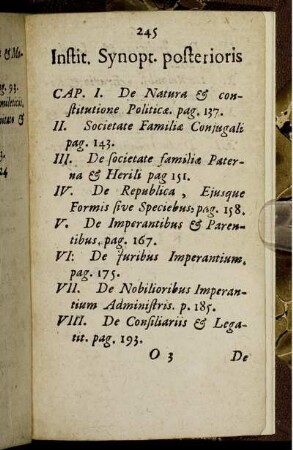 & Mo-
g. 93.
24
245
Instit. Synopt. posterioris
CAP. I. De Natura & con-
stitutione Politicæ. pag. 137.
II. Societate Familiæ Conjugali
pag. 143.
III. De societate familiæ Pater-
na & Herili pag 151.
IV. De Republica, Ejusque
Formis sive Speciebus, pag. 158.
V. De Imperantibus & Paren-
tibus, pag. 167.
VI: De Juribus Imperantium,
pag. 175.
VII. De Nobilioribus Imperan-
tium Administris. p. 185.
VIII. De Consiliariis & Lega-
tit. pag. 193.
O 3 De